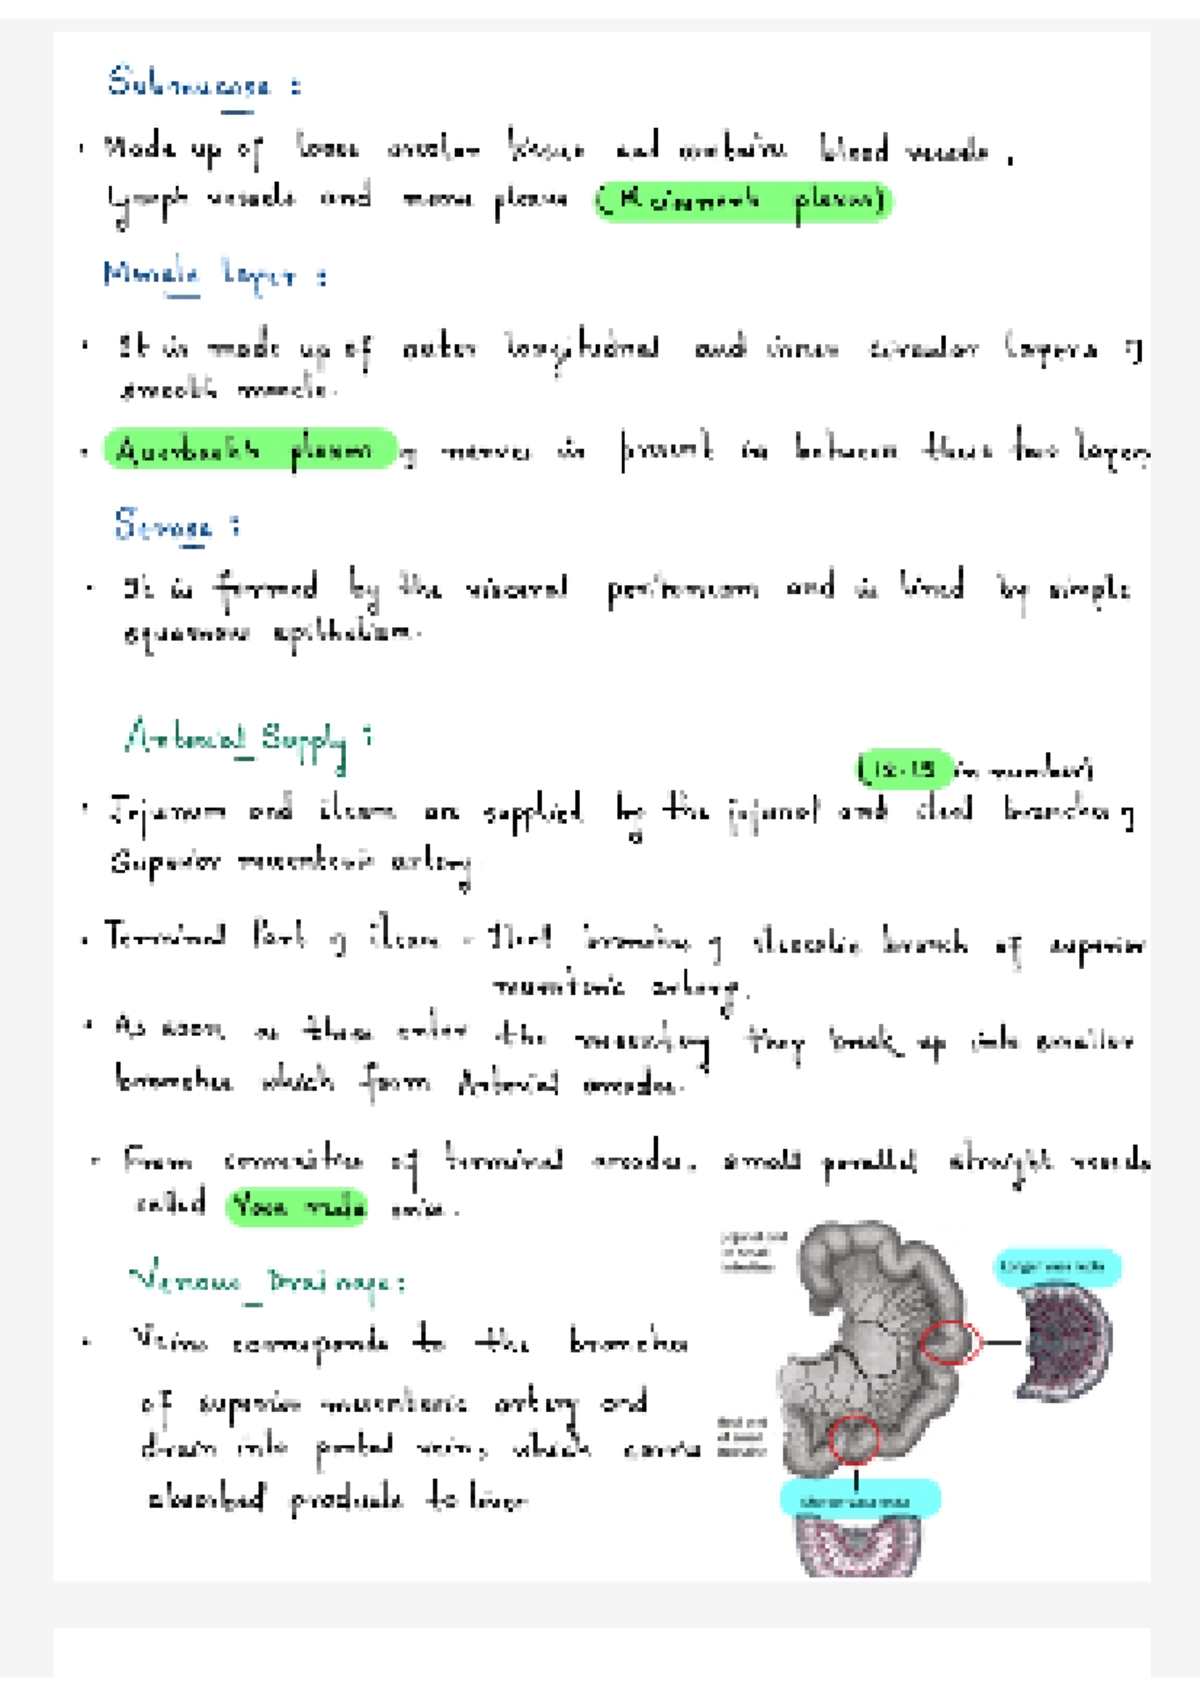 Submucosa :
• Made up of loose areolar tissue and contains blood vessels ,
lymph vessels and nerve plexus (Meissner's plexus)
Muscle layer :
• It is made up of outer longitudinal and inner circular layers of
smooth muscle.
• Auerbach's plexus of nerves is present in between these two layers
Serosa :
• It is formed by the visceral peritoneum and is lined by simple
squamous epithelium.
Arterial Supply :
(12-15 in number)
• Jejunum and ileum are supplied by the jejunal and ileal branches of
Superior mesenteric artery
• Terminal Part of ileum - Ileal branches of ileocolic branch of superior
mesenteric artery.
• As soon as these enter the mesentery they break up into smaller
branches which form Arterial arcades.
• From convexities of terminal arcades, small parallel straight vessels
called Vasa recta arise.
Jejunal end
of small
intestine
Longer vasa recta
Venous Drainage :
• Veins corresponds to the branches
of superior mesenteric artery and
drain into portal vein, which carries
absorbed products to liver
Ileal end
of small
intestine
Shorter vasa recta